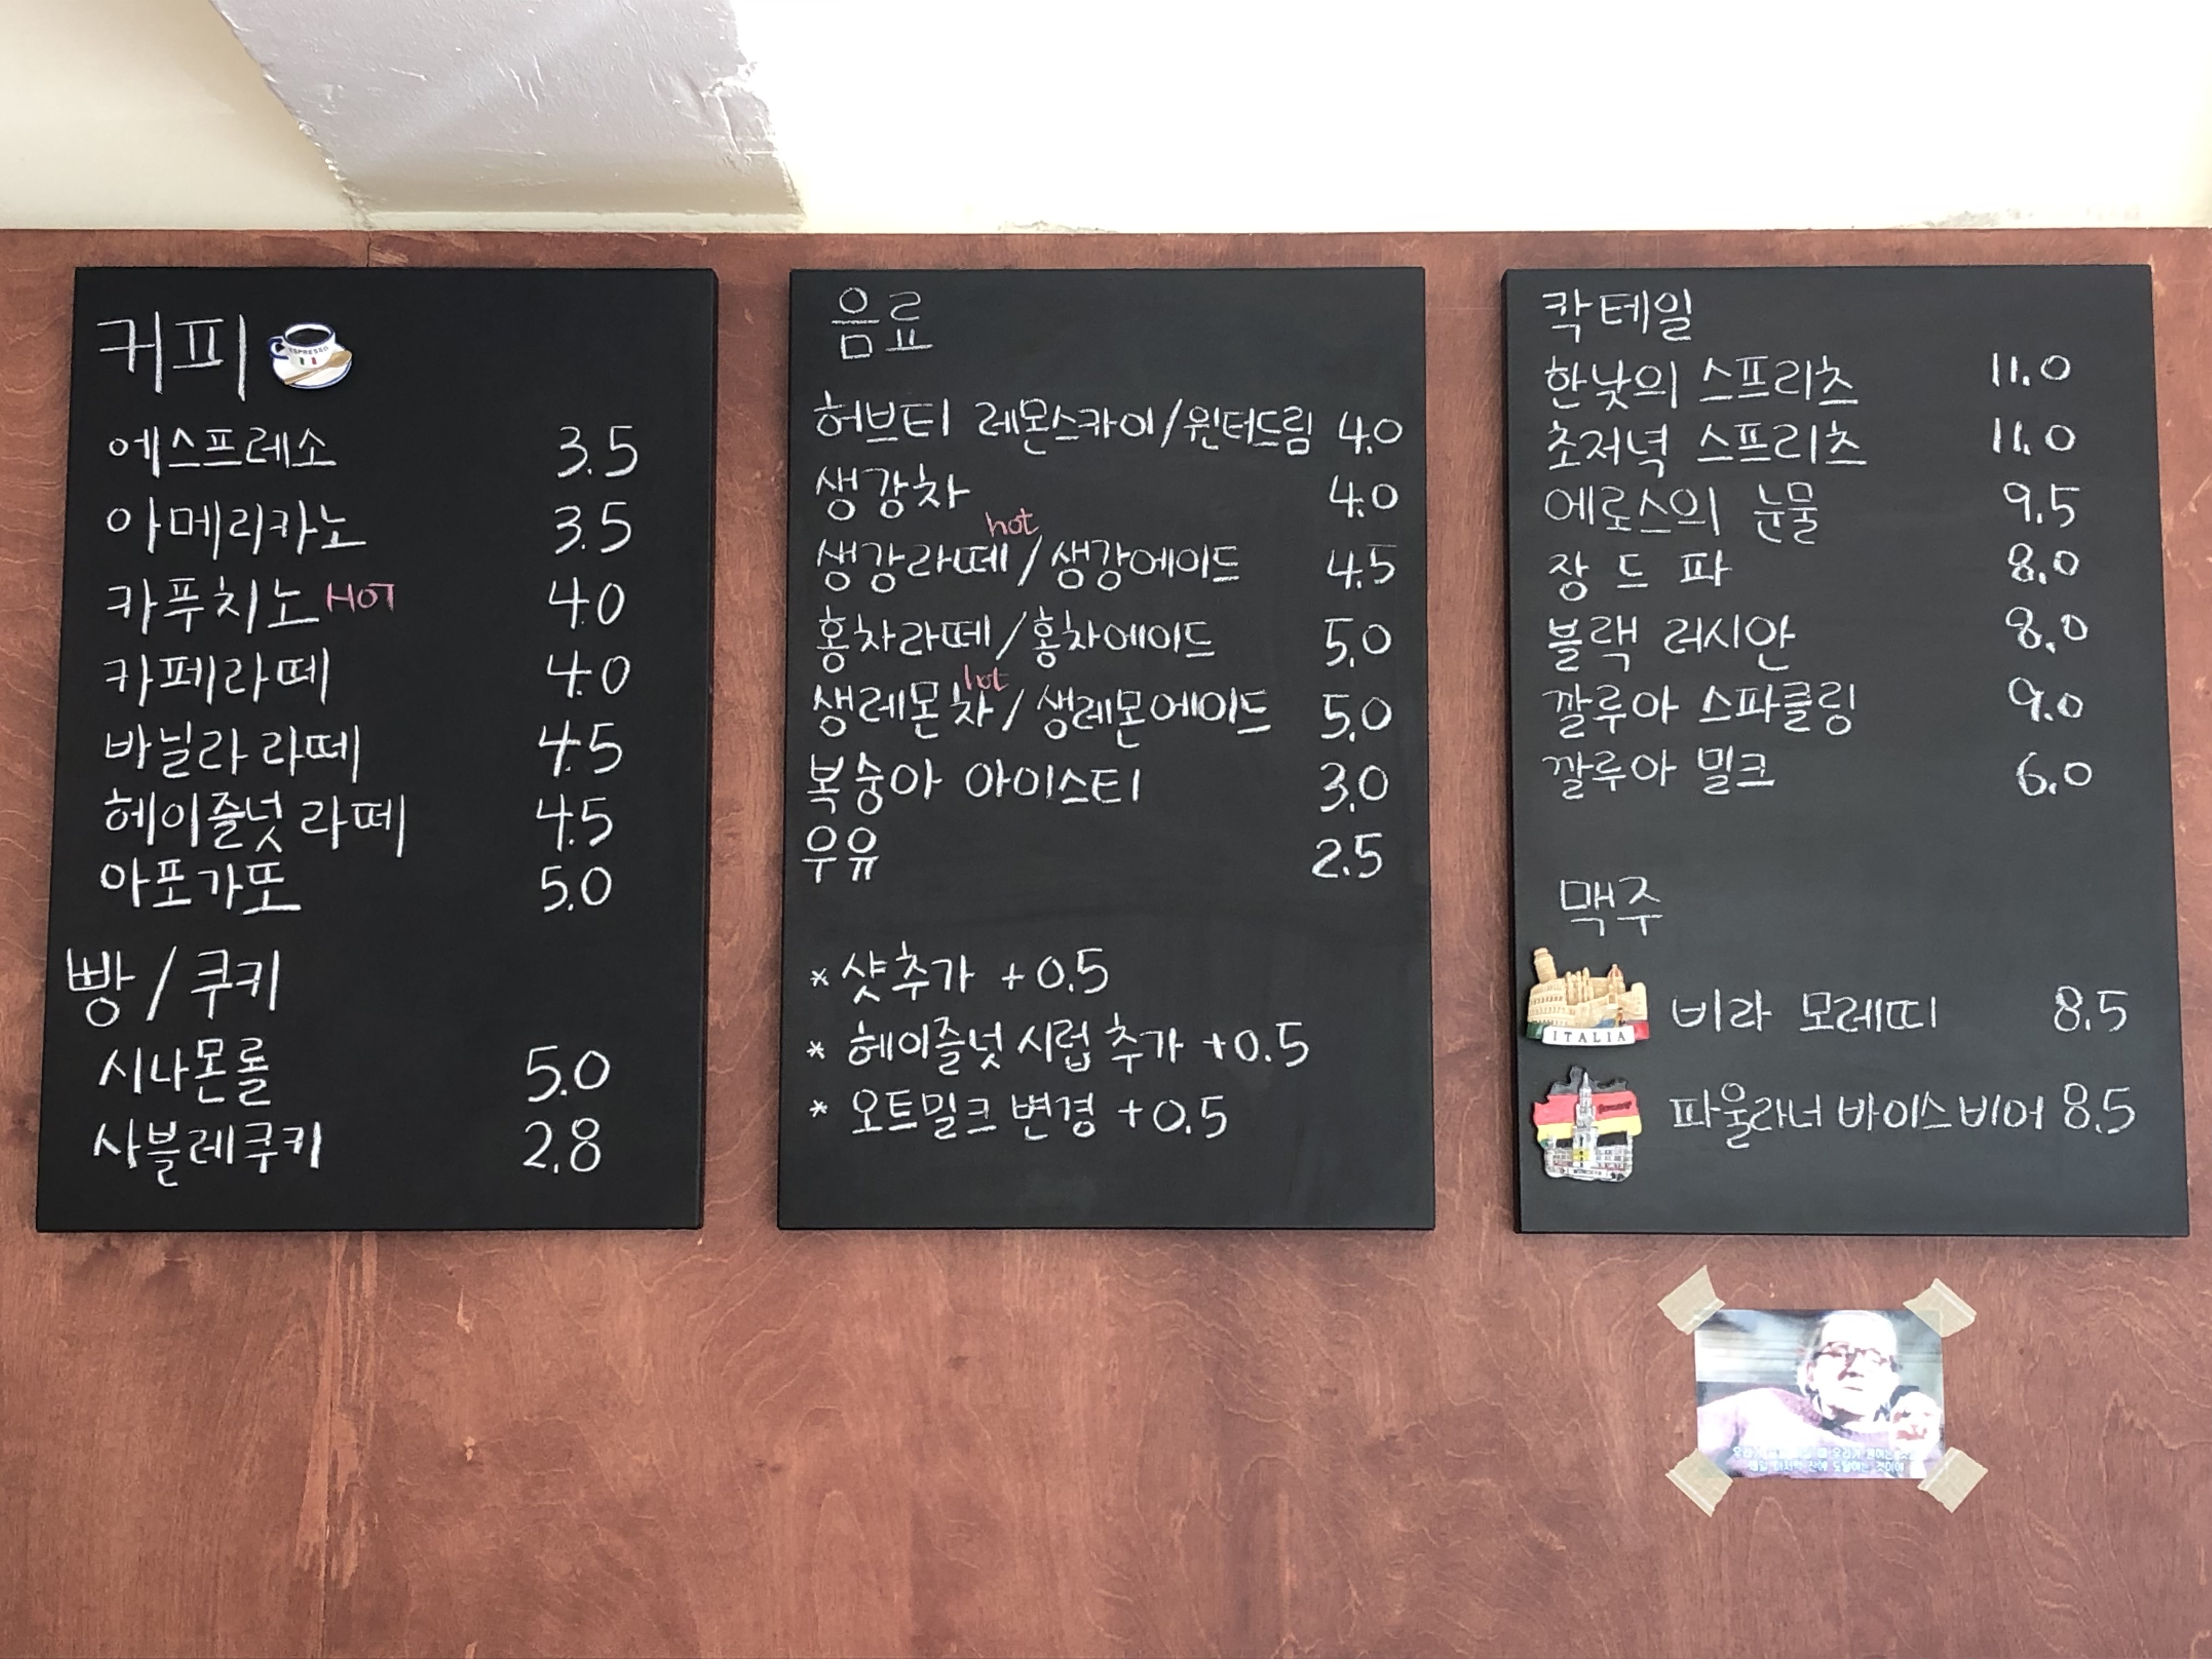 커피
ESPRESSO
에스프레소 3.5
아메리카노 3.5
카푸치노 HOT 4.0
카페라떼 4.0
바닐라 라떼 4.5
헤이즐넛 라떼 4.5
아포가또 5.0
빵 / 쿠키
시나몬롤 5.0
사블레쿠키 2.8
음료
허브티 레몬스카이/윈터드림 4.0
생강차 4.0
hot
생강라떼/생강에이드 4.5
홍차라떼/홍차에이드 5.0
hot
생레몬차/생레몬에이드 5.0
복숭아 아이스티 3.0
우유 2.5
* 샷추가 +0.5
* 헤이즐넛 시럽 추가 +0.5
* 오트밀크 변경 +0.5
칵테일
한낮의 스프리츠 11.0
초저녁 스프리츠 11.0
에로스의 눈물 9.5
장 드 파 8.0
블랙 러시안 8.0
깔루아 스파클링 9.0
깔루아 밀크 6.0
맥주
ITALIA
비라 모레띠 8.5
파울라너 바이스비어 8.5